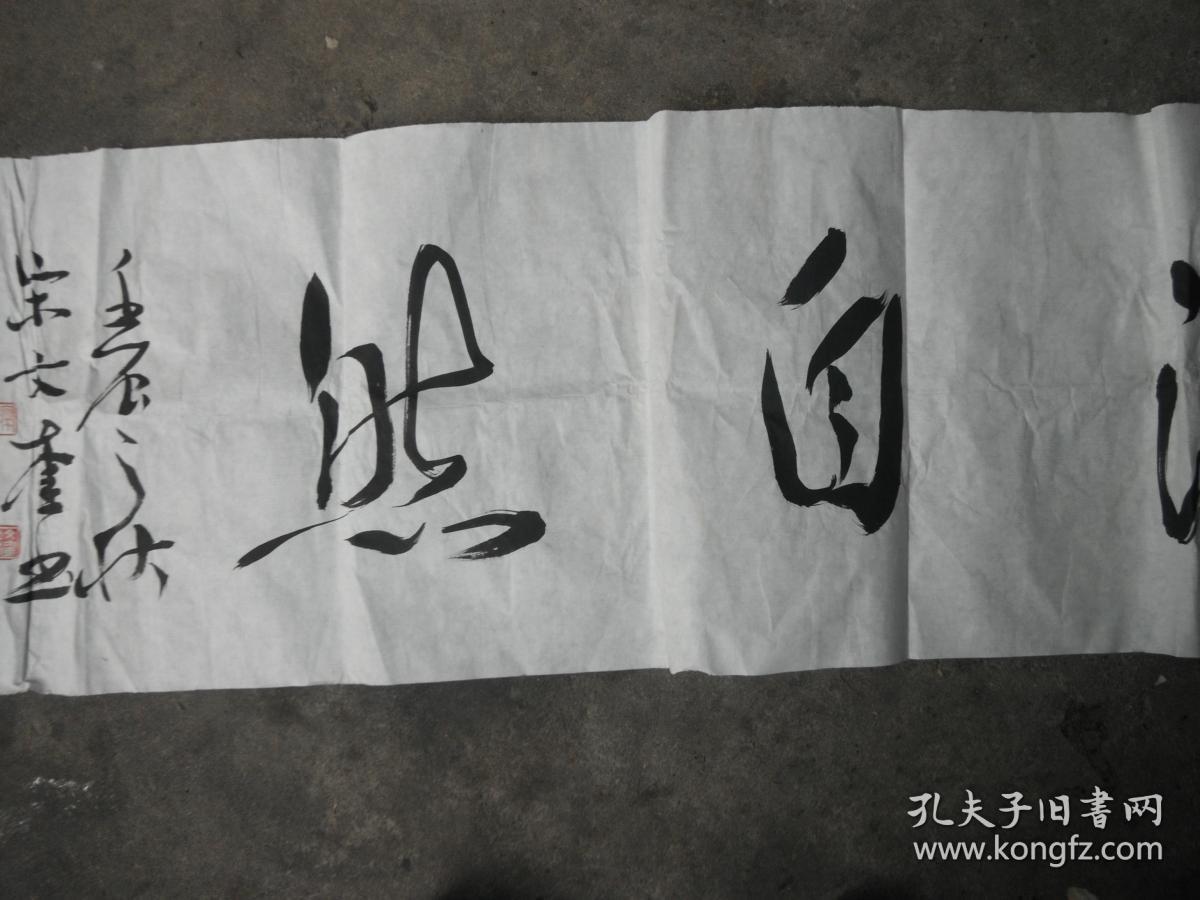 自然
壬辰之秋
宋文奎书
孔夫子旧書网
www.kongfz.com